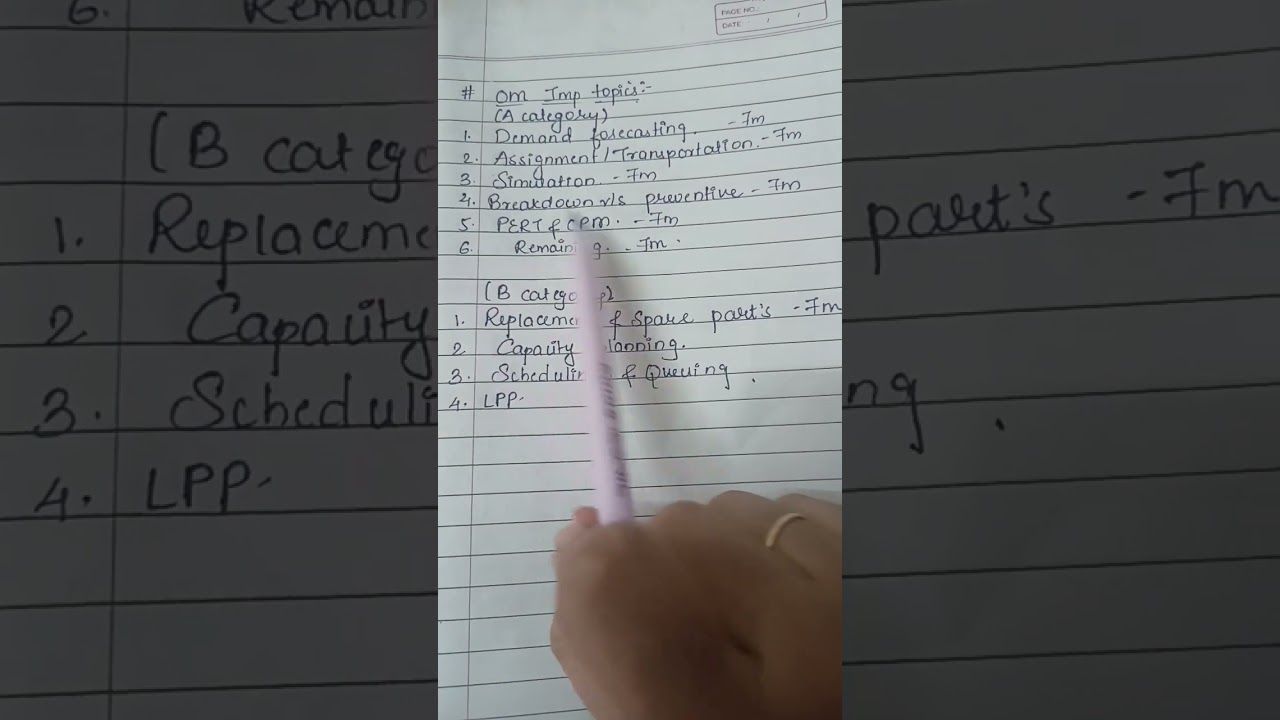 PAGE NO.:
DATE: / /
# OM Imp topics:-
(A category)
1. Demand forecasting. - 7m
2. Assignment/Transportation. - 7m
3. Simulation. - 7m
4. Breakdown v/s preventive - 7m
5. PERT & CPM. - 7m
6. Remaining. - 7m.
(B category)
1. Replacement & Spare part's - 7m
2 Capacity Planning.
3. Scheduling & Queuing.
4. LPP.